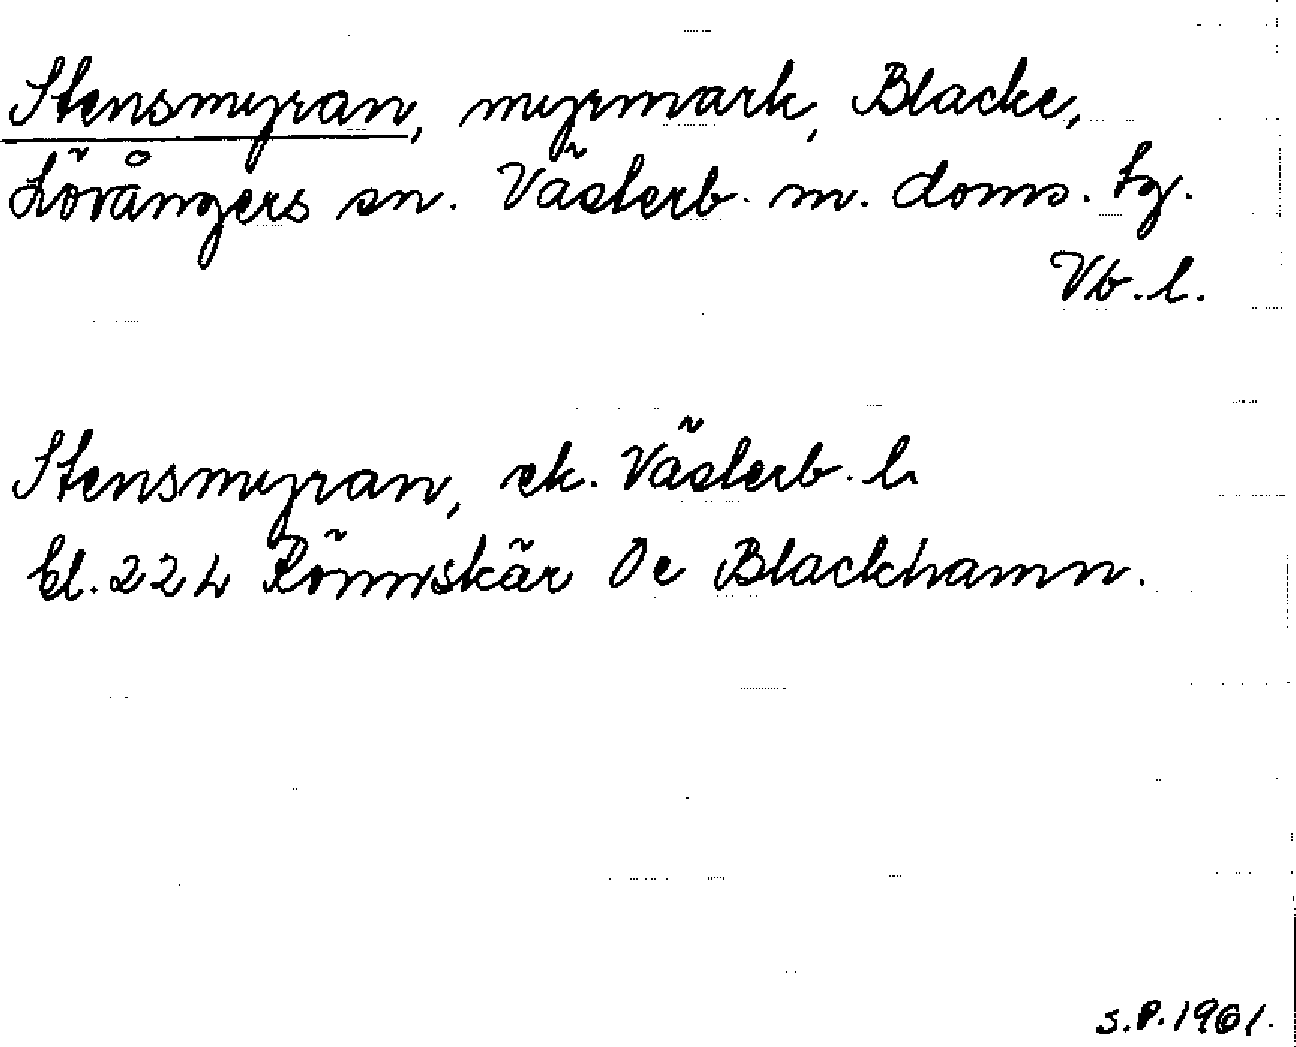 Stensmyran, myrmark, Blacke,
Lövångers sn. Västerb. m. doms. tg.
Vb. l.
Stensmyran, ek. Västerb. l.
bl. 224 Rönnskär Oc Blackhamn.
S.P. 1961.